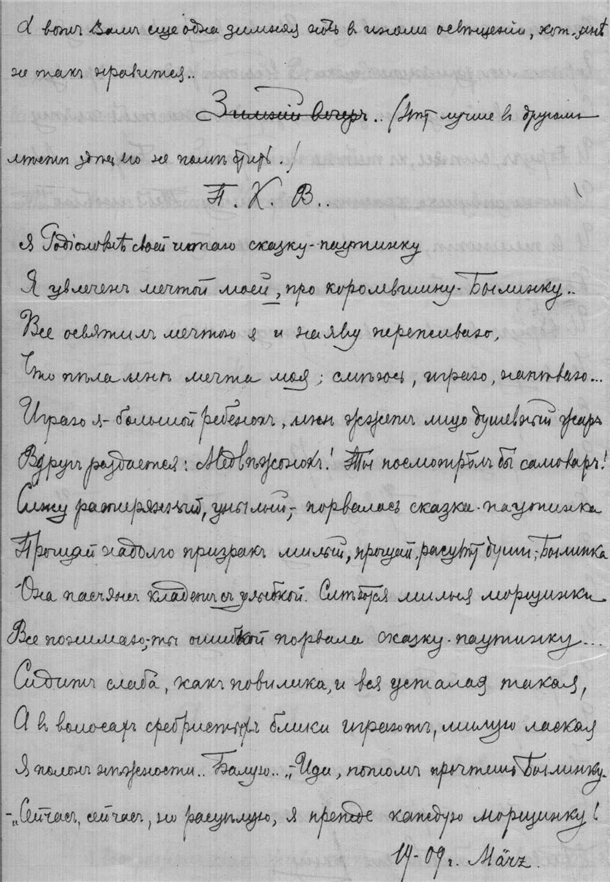 А вотъ Вамъ еще одна зимняя
не такъ нравится..
Зимній вечеръ.. (Нѣтъ лучше в другомъ
его не
П. Х. В..
я Родіоновнѣ своей читаю сказку-паутинку
Я увлеченъ мечтой моей, про королевишну-Былинку..
Все освятилъ мечтою я и наяву переживаю,
Что пѣла мнѣ мечта моя; смѣюсь, играю, напѣваю...
Играю я-большой ребенокъ, мнѣ жжетъ лицо душевный жаръ
Вдругъ раздается: Медвѣжонокъ! Ты посмотрѣлъ бы самоваръ!
Сижу растерянный, унылый,- порвалась сказка-паутинка
Прощай надолго призракъ милый, прощай, души,-Былинка
Она пасьянс кладетъ съ улыбкой. Смѣются милыя морщинки
Все понимаю,-ты ошибкой порвала сказку-паутинку...
Сидитъ слаба, какъ повилика, и вся усталая такая,
А в волосахъ сребристыхъ блики играютъ, милую лаская
Я полон нѣжности.. Балую.. „-Иди, потомъ прочтешь Былинку-
-„Сейчасъ, сейчас, но расцѣлую, я прежде каждую морщинку!
14-09г. März.